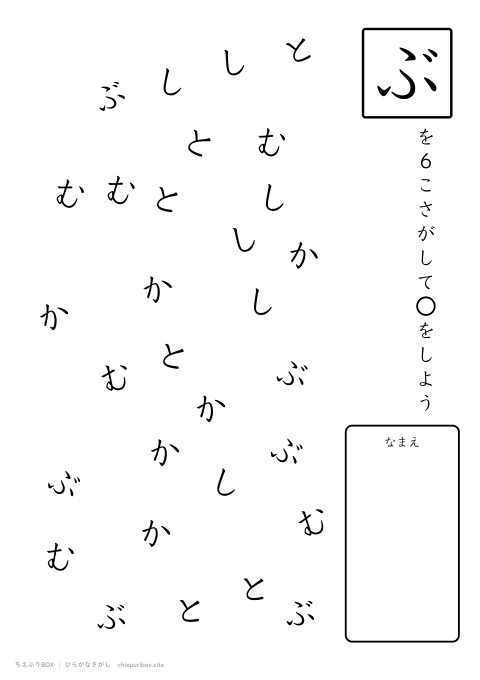 ぶ
を6こさがして○をしよう
なまえ
と
し
し
ぶ
と
む
む
む
と
し
し
か
か
し
か
と
む
ぶ
か
か
ぶ
ぶ
し
む
か
む
と
ぶ
と
ぶ
ちえぷりBOX | ひらがなさがし chiepuribox.site